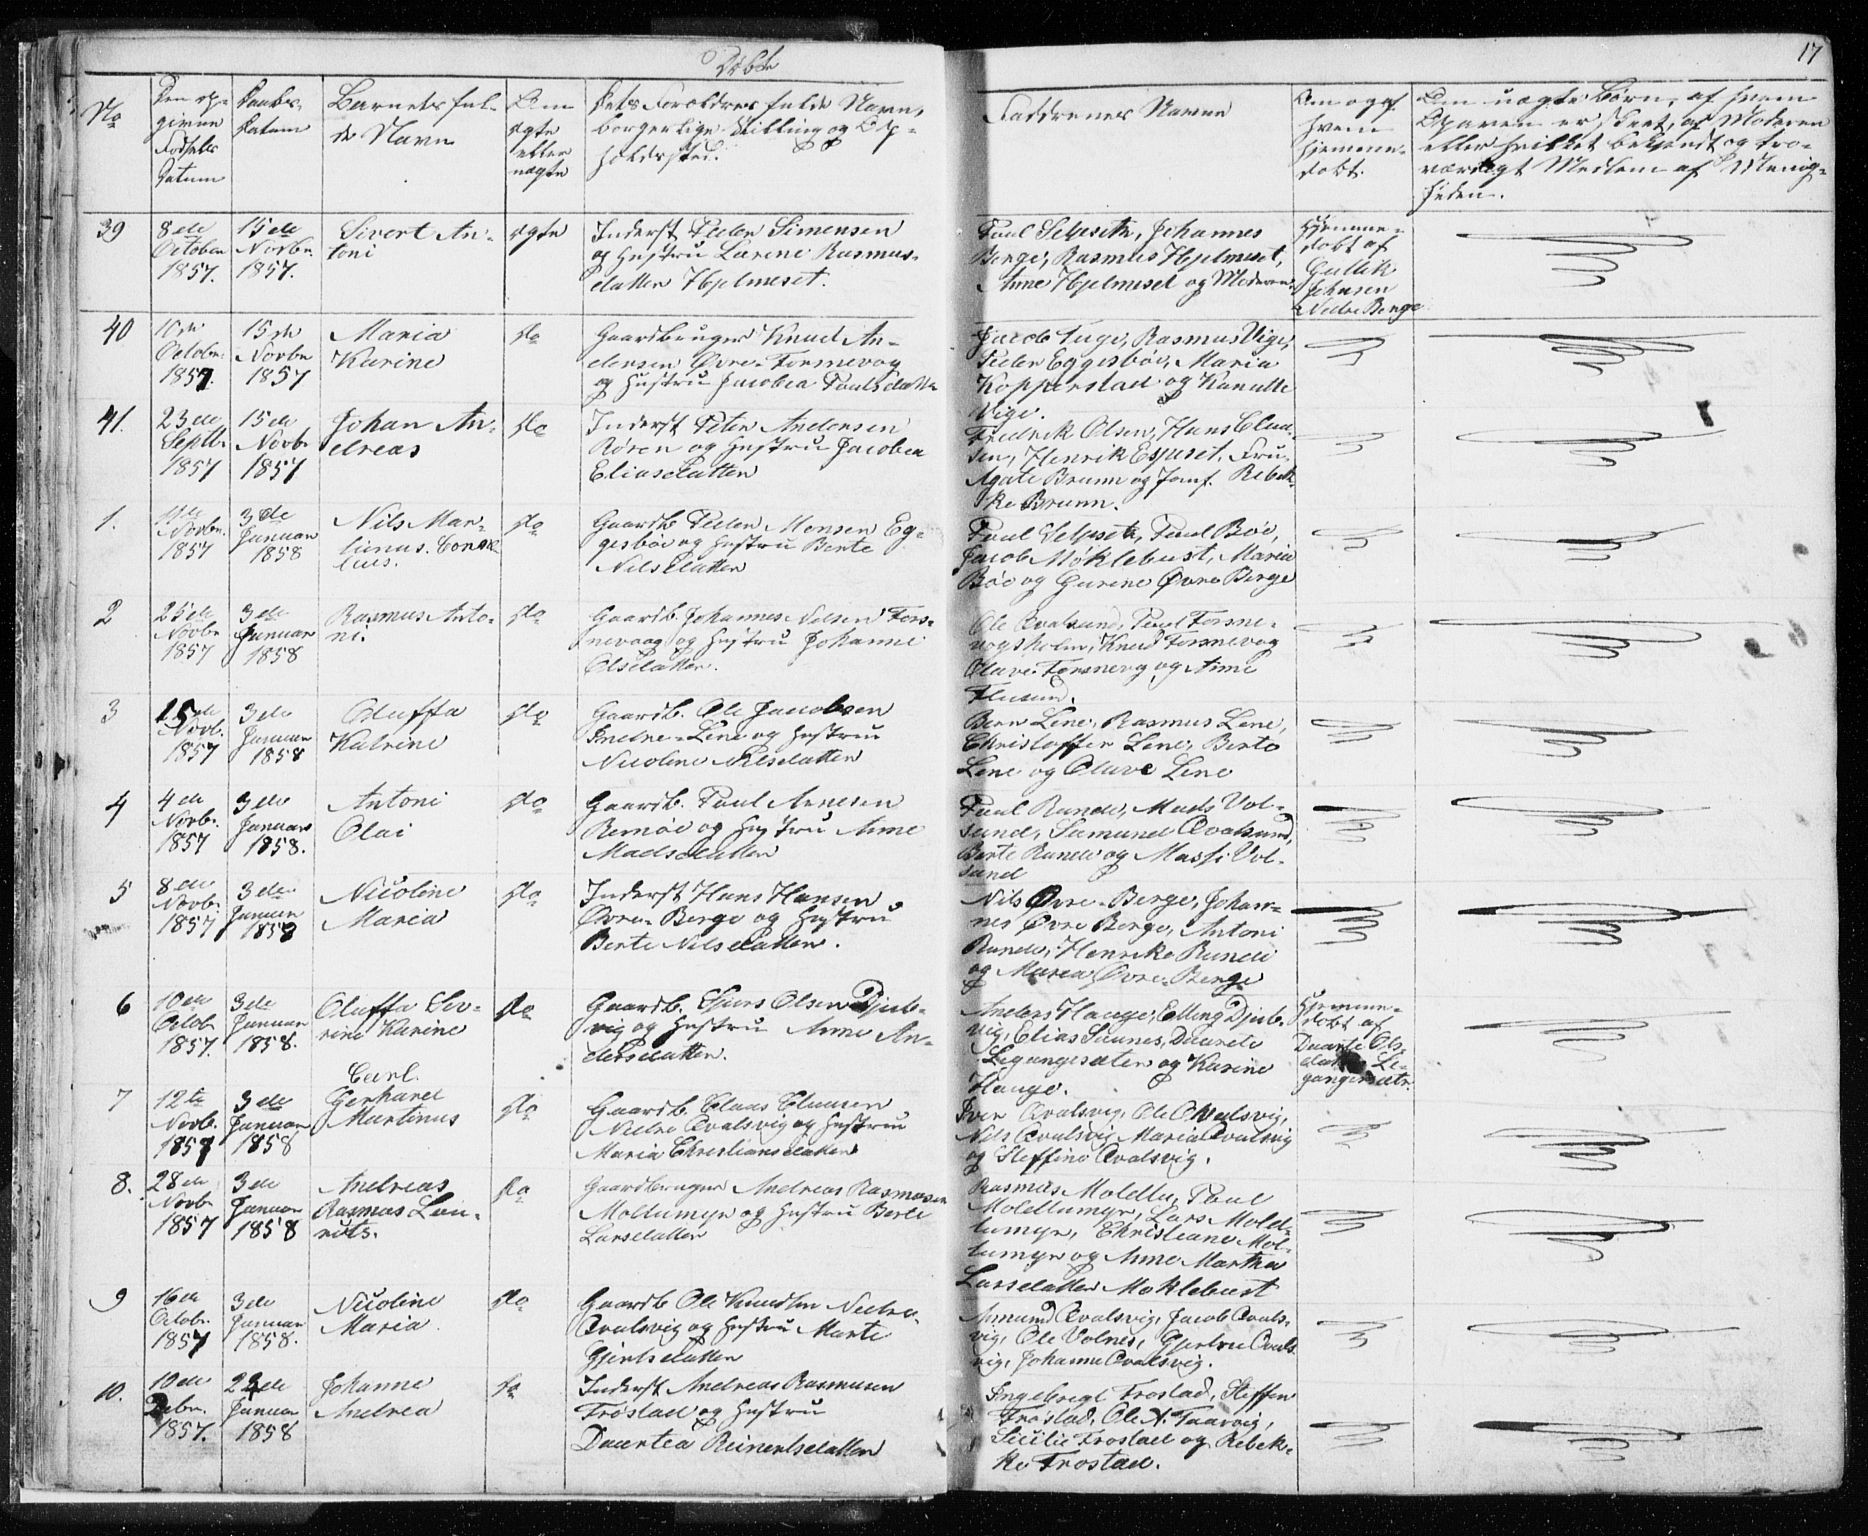 Døbte
17
No
Den op-
givne
Fødsels
Datum
Daabs-
Datum
Barnets ful-
de Navn
Om
ægte
eller
uægte
Dets Forældres fulde Navn,
borgerlige Stilling og Op-
holdssted.
Faddrenes Navne
Om og af
hvem
hjemme-
døbt.
Om uægte Børn, af hvem
Opgaven er skeet, af Moderen
eller hvilket bekjendt og tro-
værdigt Medlem af Menig-
heden.
39
8de
October
1857.
15de
Novbr.
1857.
Sivert An-
toni
ægte
Inderst Peder Simensen
og Hustru Larine Rasmus-
datter Hjelmeset.
Paul Selsete, Johannes
Berge, Rasmus Hjelmeset,
Anne Hjelmeset og Moderen.
Hjemme-
døbt af
Gullik
Johnsen
Nedre Berge
40
10de
Octobr.
1857.
15de
Novbr
1857
Maria
Karine
do
Gaardbruger Knud An-
dersen Øvre-Fosnevog
og Hustru Jacobea Paulsdatter
Jacob Tuge, Rasmus Vige,
Peder Eggesbøe, Maria
Kopperstad og Kanutte
Vige.
41.
23de
Septbr.
1857
15de
Novbr
1857
Johan An-
dreas
do
Inderst Peter Andersen
Røren og Hustru Jacobea
Eliasdatter
Fredrik Olsen, Hans Clau-
sen, Henrik Esjuset, Fru
Agate Brunn og Jomf. Rebek-
ke Brunn.
1.
Novbr.
1857
3de
Januar
1858
Nils Mar-
tinus. Corne
lius.
do
Gaardb. Peder Monsen Eg-
gesbøe og Hustru Berte
Nilsdatter
Paul Selsete, Paul Bøe,
Jacob Møklebust, Maria
Bøe og Gurine Øvre Berge
2
25de
Novbr
1857
3de
Januar
1858
Rasmus Anto-
ni.
do
Gaardb. Johannes Nilsen Fos-
nevaag og Hustru Johanne
Olsdatter.
Ole Qvalsund, Paul Fosne-
vogsholm, Knud Fosnevog
Olave Fosnevog og Anne
Flusund.
3
15de
Novb.
1857
3de
Januar
1858
Oluffa
Katrine
do
Gaardb. Ole Jacobsen
Indre-Leine og Hustru
Nicoline Nilsdatter
Bern Leine, Rasmus Leine,
Christoffer Leine, Berte
Leine og Olave Leine
4
4de
Novbr.
1857
3de
Januar
1858.
Antoni
Olai
do
Gaardb. Paul Arnesen
Remøe og Hustru Anne
Madsdatter
Paul Runde, Mads Vol-
sund, Samuel Qvalsund,
Berte Runde og Massi Vol-
sund
5
8de
Novbr.
1857
3de
Januar
1858
Nicoline
Maria
do
Inderst Hans Hansen
Øvre-Berge og Hustru
Berte Nilsdatter.
Nils Øvre-Berge, Johan-
nes Øvre Berge, Antoni
Runde, Henrike Runde
og Maria Øvre-Berge
6
10de
Octob
1857.
3de
Januar
1858.
Oluffa Sev-
rine Karine
do
Gaardb. Sjurs Olsen Djub-
vig og Hustru Anne An-
dersdatter.
Anders Hauge, Elling Djub-
vig, Elias Saunes, Daarete
Legangesæter og Karine
Hauge.
Hjemme-
døbt af
Daarte Ols-
datter Le-
gangersætr.
7
12te
Novb.
1857
3de
Januar
1858
Carl.
Gerhard
Martinus
do
Gaardb. Claas Clausen
Nedre Qvalsvig og Hustru
Maria Christiansdatter
Iver Qvalsvig, Ole Qvalsvig,
Nils Qvalsvig, Maria Qvalsvig
og Steffine Qvalsvig.
8.
28de
Novbr
1857
3de
Januar
1858
Andreas
Rasmus Lau-
rits.
do
Gaardbruger Andreas Rasmusen
Moltumyr og Hustru Berte
Larsdatter
Rasmus Moldtu, Paul
Moldtumyr, Lars Mold-
tumyr, Christiane Mol-
tumyr og Anne Martha
Larsdatter Moklebust
9
16de
Octobr.
1857
3de
Januar
1858.
Nicoline
Maria.
do
Gaardb Ole Knudsen Nedre-
Qvalsvig og Hustru Marte
Gjertsdatter
Amund Qvalsvig, Jacob Qvals-
vig, Ole Volnes, Gjertru Qvals
vig, Johanne Qvalsvig.
10.
10de
Debr.
1857.
24de
Januar
1858
Johanne
Andrea
do
Inderst Andreas Rasmusen
Frøstad og Hustru
Daartea Reinertsdatter
Ingebrigt Frostad, Steffen
Frøstad, Ole A. Taarvig,
Sicilie Frostad og Rebek-
ke Frøstad.